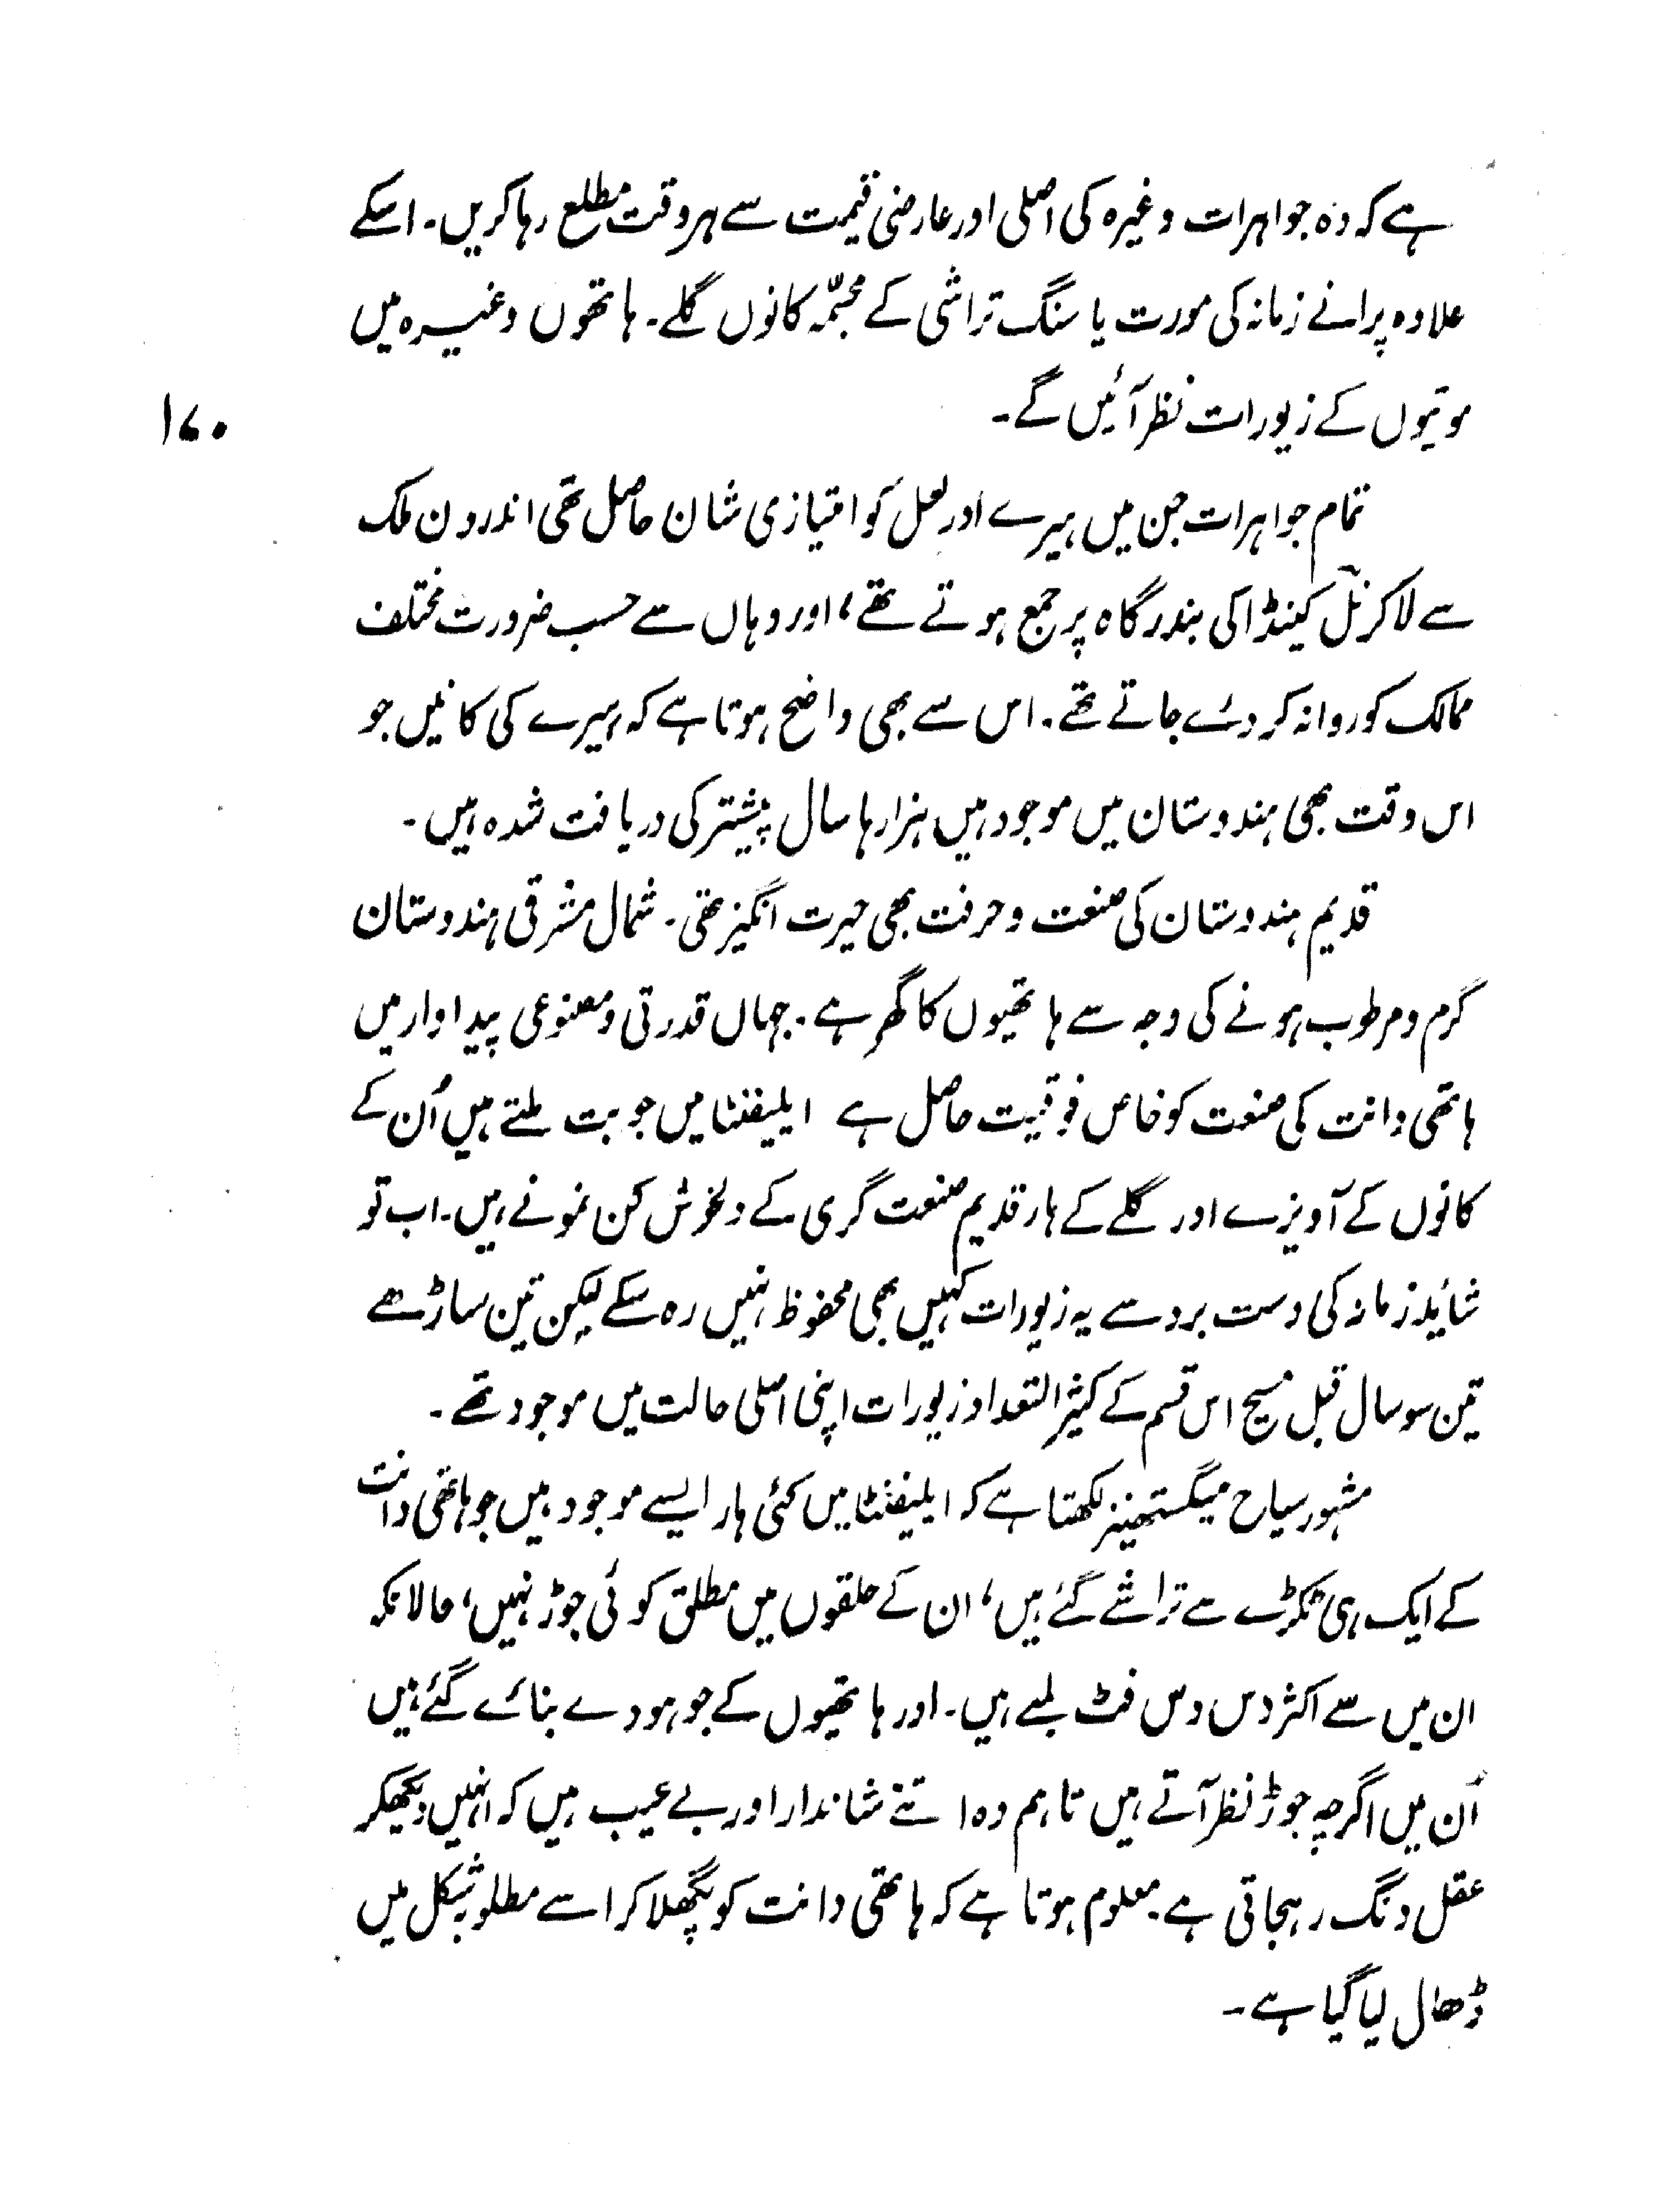 ہے کہ وہ جواہرات وغیرہ کی اصلی اور عارضی قیمت سے ہر وقت مطلع رہا کریں۔ اسکے
علاوہ پرانے زمانہ کی مورت یا سنگ تراشی کے مجسّمہ کانوں گلے۔ ہاتھوں وغیرہ میں
موتیوں کے زیورات نظر آئیں گے۔
۱۷۰
تمام جواہرات جن میں ہیرے اور لعل کو امتیازی شان حاصل تھی اندرون ملک
سے لا کر نل کینڈا کی بندرگاہ پر جمع ہوتے تھے، اور وہاں سے حسب ضرورت مختلف
ممالک کو روانہ کر دئے جاتے تھے۔ اس سے بھی واضح ہوتا ہے کہ ہیرے کی کانیں جو
اس وقت بھی ہندوستان میں موجود ہیں ہزارہا سال پیشتر کی دریافت شدہ ہیں۔
قدیم ہندوستان کی صنعت و حرفت بھی حیرت انگیز تھی۔ شمال مشرقی ہندوستان
گرم و مرطوب ہونے کی وجہ سے ہاتھیوں کا گھر ہے۔ جہاں قدرتی و مصنوعی پیداوار میں
ہاتھی دانت کی صنعت کو خاص فوقیت حاصل ہے ایلیفنٹا میں جو بت ملتے ہیں اُن کے
کانوں کے آویزے اور گلے کے ہار قدیم صنعت گری کے دلخوش کن نمونے ہیں۔ اب تو
شائد زمانہ کی دست برد سے یہ زیورات کہیں بھی محفوظ نہیں رہ سکے لیکن تین ساڑھے
تین سو سال قبل مسیح اس قسم کے کثیر التعداد زیورات اپنی اصلی حالت میں موجود تھے۔
مشہور سیاح میگستھنیز لکھتا ہے کہ ایلیفنٹا میں کئی ہار ایسے موجود ہیں جو ہاتھی دانت
کے ایک ہی ٹکڑے سے تراشے گئے ہیں، ان کے حلقوں میں مطلق کوئی جوڑ نہیں، حالانکہ
ان میں سے اکثر دس دس فٹ لمبے ہیں۔ اور ہاتھیوں کے جو ہودے بنائے گئے ہیں
اُن میں اگرچہ جوڑ نظر آتے ہیں تاہم وہ اتنے شاندار اور بے عیب ہیں کہ انہیں دیکھکر
عقل دنگ رہجاتی ہے۔ معلوم ہوتا ہے کہ ہاتھی دانت کو پگھلا کر اسے مطلوبہ شکل میں
ڈھال لیا گیا ہے۔